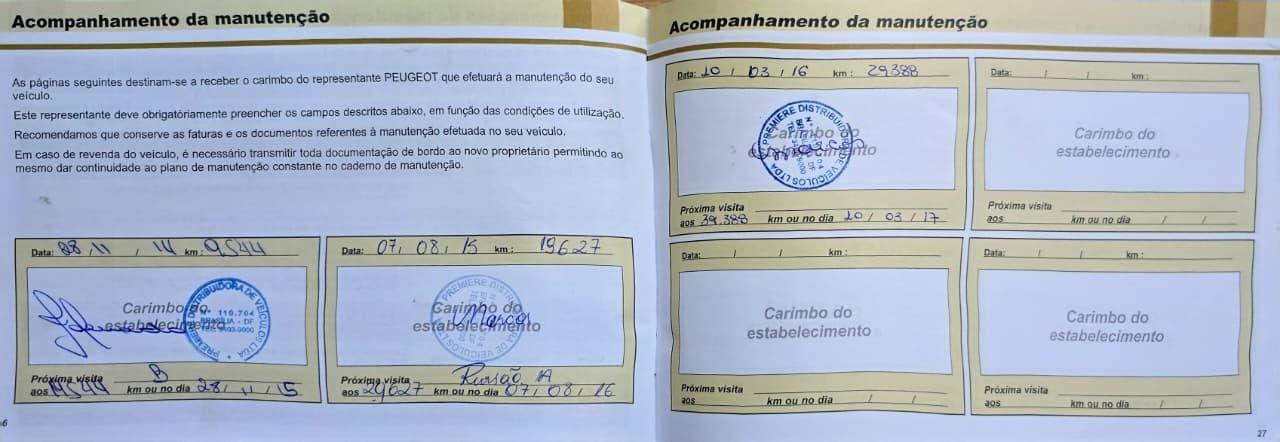 Acompanhamento da manutenção
As páginas seguintes destinam-se a receber o carimbo do representante PEUGEOT que efetuará a manutenção do seu
veículo.
Este representante deve obrigatóriamente preencher os campos descritos abaixo, em função das condições de utilização.
Recomendamos que conserve as faturas e os documentos referentes à manutenção efetuada no seu veículo.
Em caso de revenda do veículo, é necessário transmitir toda documentação de bordo ao novo proprietário permitindo ao
mesmo dar continuidade ao plano de manutenção constante no caderno de manutenção.
Data: 28 / 11 / 14 km: 9544
Carimbo do
estabelecimento
PREMIERE DISTRIBUIDORA DE VEÍCULOS LTDA
N° 110.704
BRASÍLIA - DF
Próxima visita B
aos km ou no dia 28 / 11 / 15
Data: 07 / 08 / 15 km: 19627
Carimbo do
estabelecimento
Marcos
Próxima visita Revisão A
aos 29627 km ou no dia 07 / 08 / 16
6
Acompanhamento da manutenção
Data: 10 / 03 / 16 km: 29388
PREMIERE DISTRIBUIDORA DE VEICULOS LTDA
Carimbo do
estabelecimento
Próxima visita
aos 39.388 km ou no dia 10 / 03 / 17
Data: / / km:
Carimbo do
estabelecimento
Próxima visita
aos km ou no dia / /
Data: / / km:
Carimbo do
estabelecimento
Próxima visita
aos km ou no dia / /
Data: / / km:
Carimbo do
estabelecimento
Próxima visita
aos km ou no dia / /
27